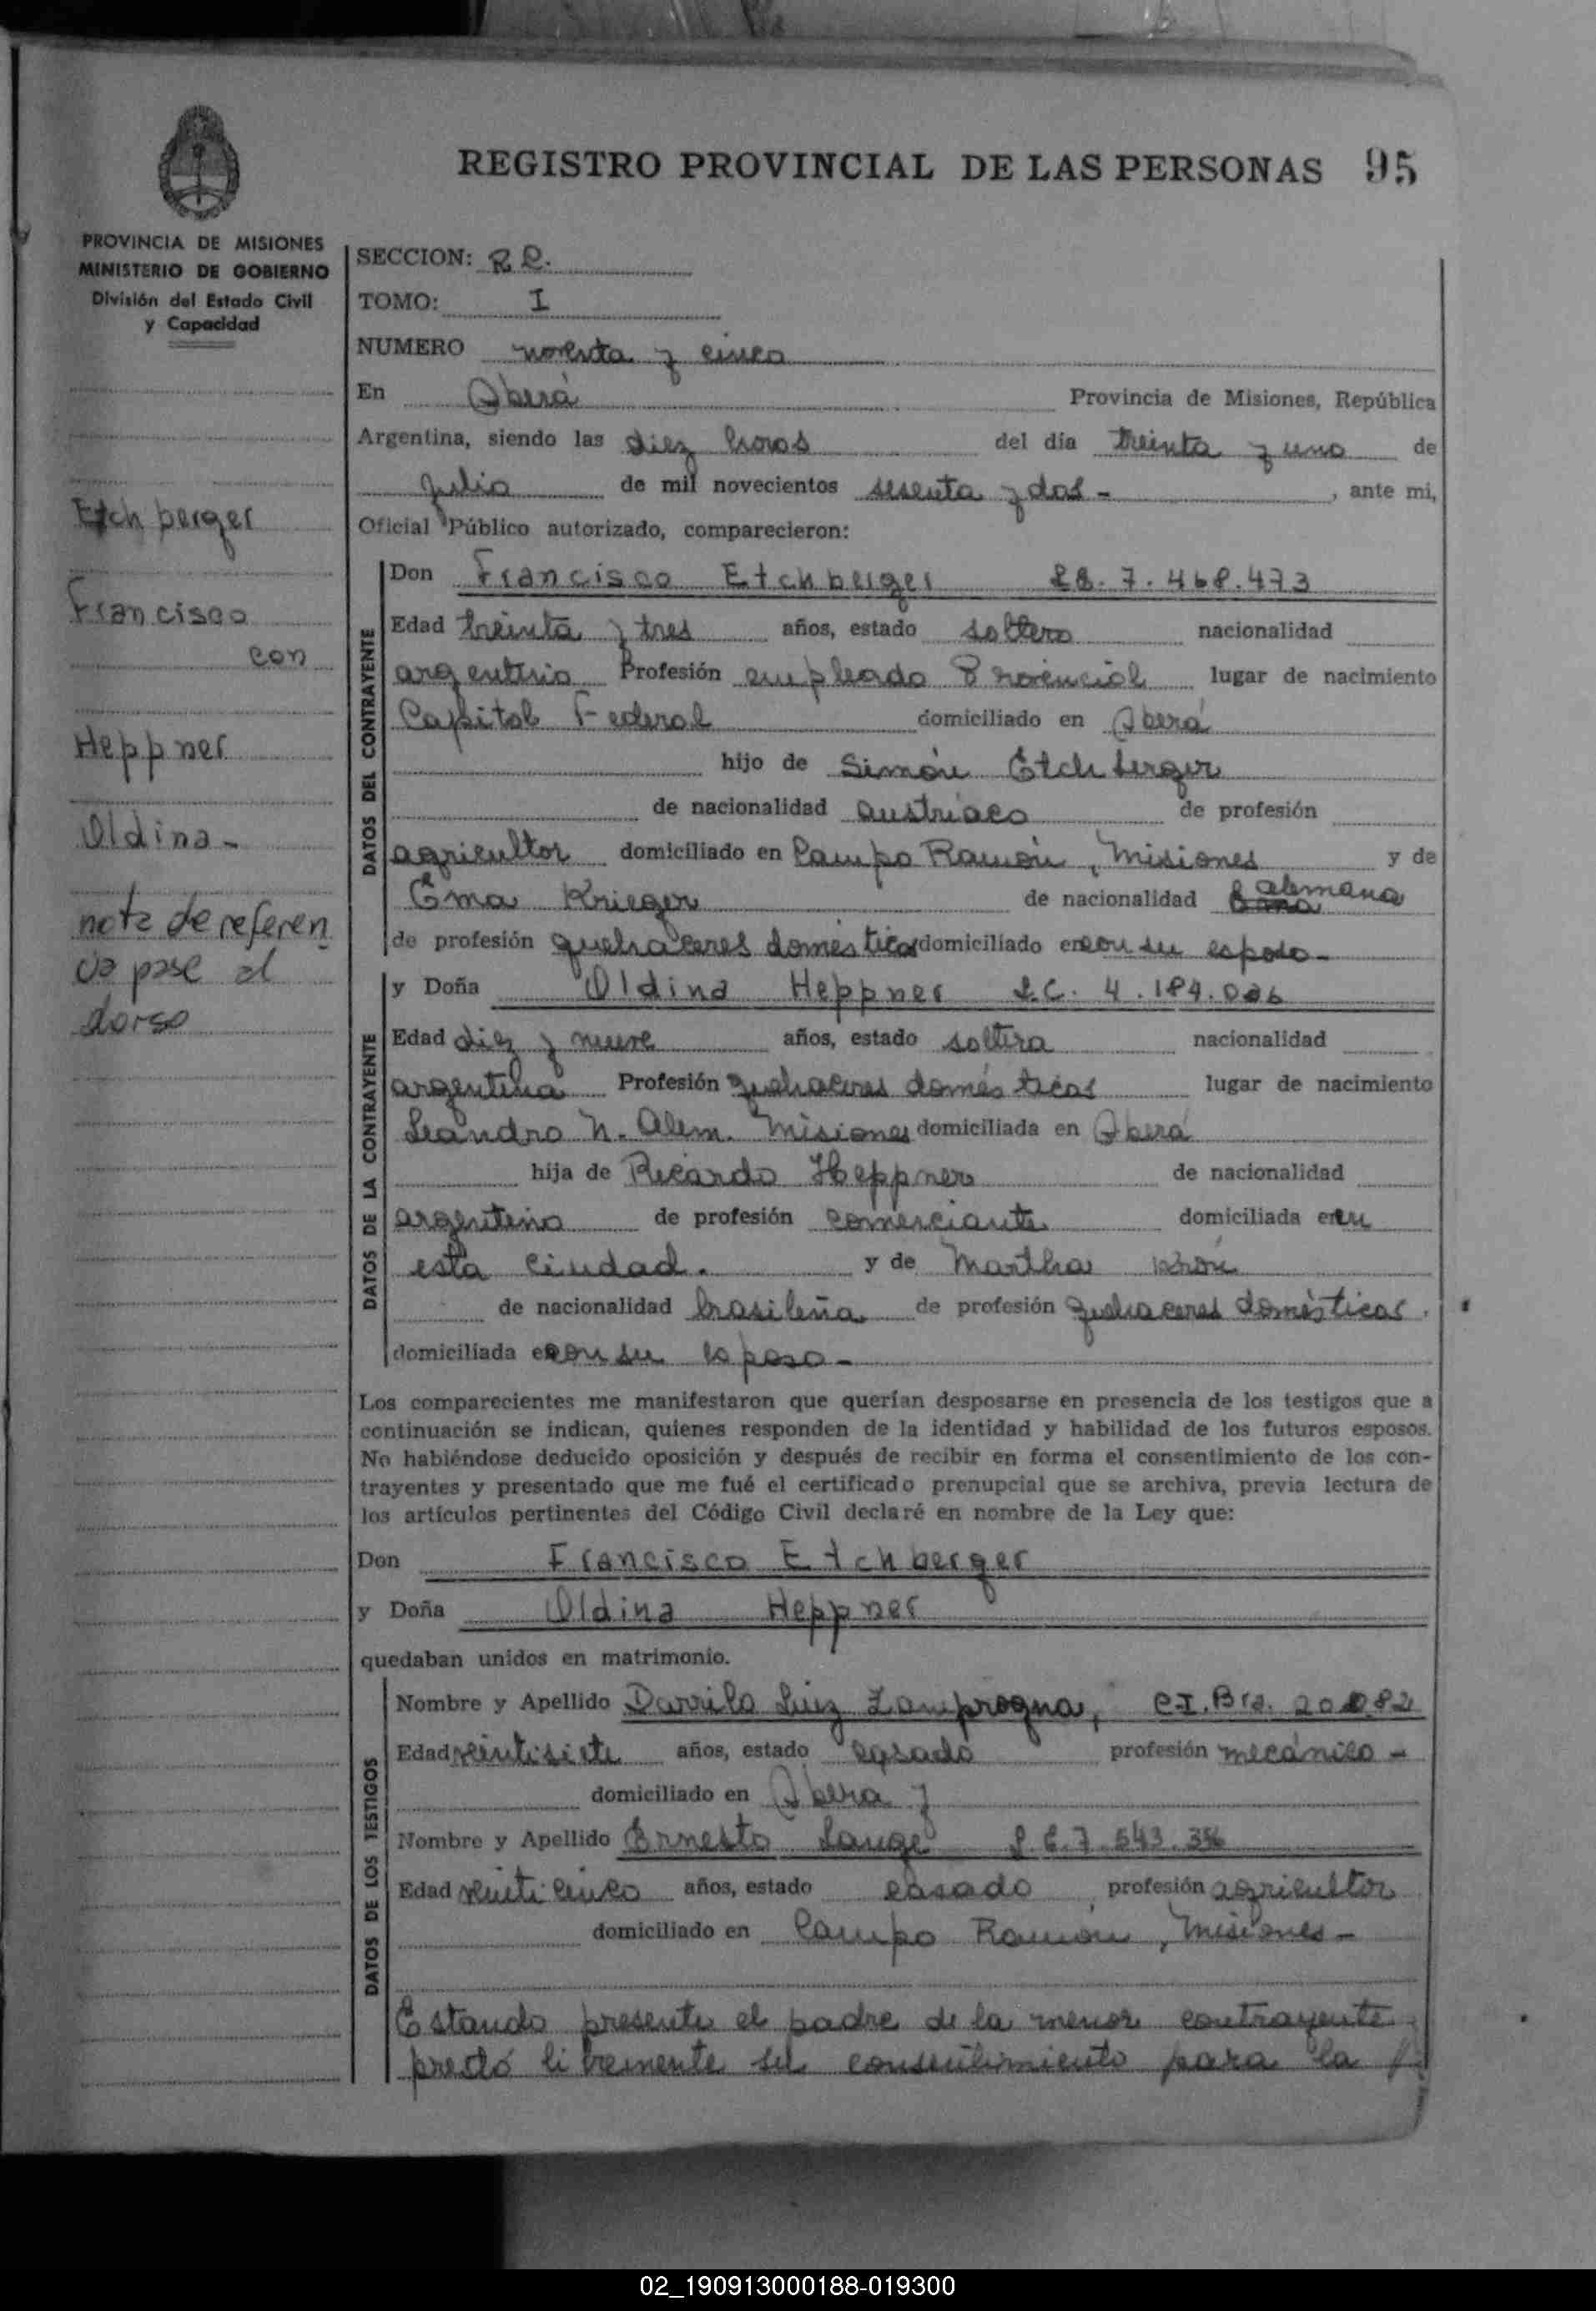 REGISTRO PROVINCIAL DE LAS PERSONAS 95
PROVINCIA DE MISIONES
MINISTERIO DE GOBIERNO
División del Estado Civil
y Capacidad
Etchberger
Francisco
con
Heppner
Oldina -
nota de referen
cia pase al
dorso
SECCION: R R.
TOMO: I
NUMERO noventa y cinco
En Oberá Provincia de Misiones, República
Argentina, siendo las diez horas del día treinta y uno de
julio de mil novecientos sesenta y dos - , ante mi,
Oficial Público autorizado, comparecieron:
DATOS DEL CONTRAYENTE
Don Francisco Etchberger 7.468.473
Edad treinta y tres años, estado soltero nacionalidad
argentino Profesión empleado Provincial lugar de nacimiento
Capital Federal domiciliado en Oberá
hijo de Simón Etchberger
de nacionalidad austriaco de profesión
agricultor domiciliado en Campo Ramón, Misiones y de
Ema Krieger de nacionalidad alemana
de profesión quehaceres domésticos domiciliado en con su esposo -
DATOS DE LA CONTRAYENTE
y Doña Oldina Heppner L.C. 4.184.006
Edad diez y nueve años, estado soltera nacionalidad
argentina Profesión quehaceres domésticos lugar de nacimiento
Leandro N. Alem. Misiones domiciliada en Oberá
hija de Ricardo Heppner de nacionalidad
argentino de profesión comerciante domiciliada en en
esta ciudad. y de Martha
de nacionalidad brasileña de profesión quehaceres domésticos.
domiciliada en con su esposo -
Los comparecientes me manifestaron que querían desposarse en presencia de los testigos que a
continuación se indican, quienes responden de la identidad y habilidad de los futuros esposos.
No habiéndose deducido oposición y después de recibir en forma el consentimiento de los con-
trayentes y presentado que me fué el certificado prenupcial que se archiva, previa lectura de
los artículos pertinentes del Código Civil declaré en nombre de la Ley que:
Don Francisco Etchberger
y Doña Oldina Heppner
quedaban unidos en matrimonio.
DATOS DE LOS TESTIGOS
Nombre y Apellido Darrilo Luiz Lamprogna, C.I. Bra.
Edad veintisiete años, estado casado profesión mecánico -
domiciliado en Oberá y
Nombre y Apellido Ernesto Lange 7.543.356
Edad veinticinco años, estado casado profesión agricultor
domiciliado en Campo Ramón, Misiones -
Estando presente el padre de la menor contrayente
prestó libremente su consentimiento para la
02_190913000188-019300